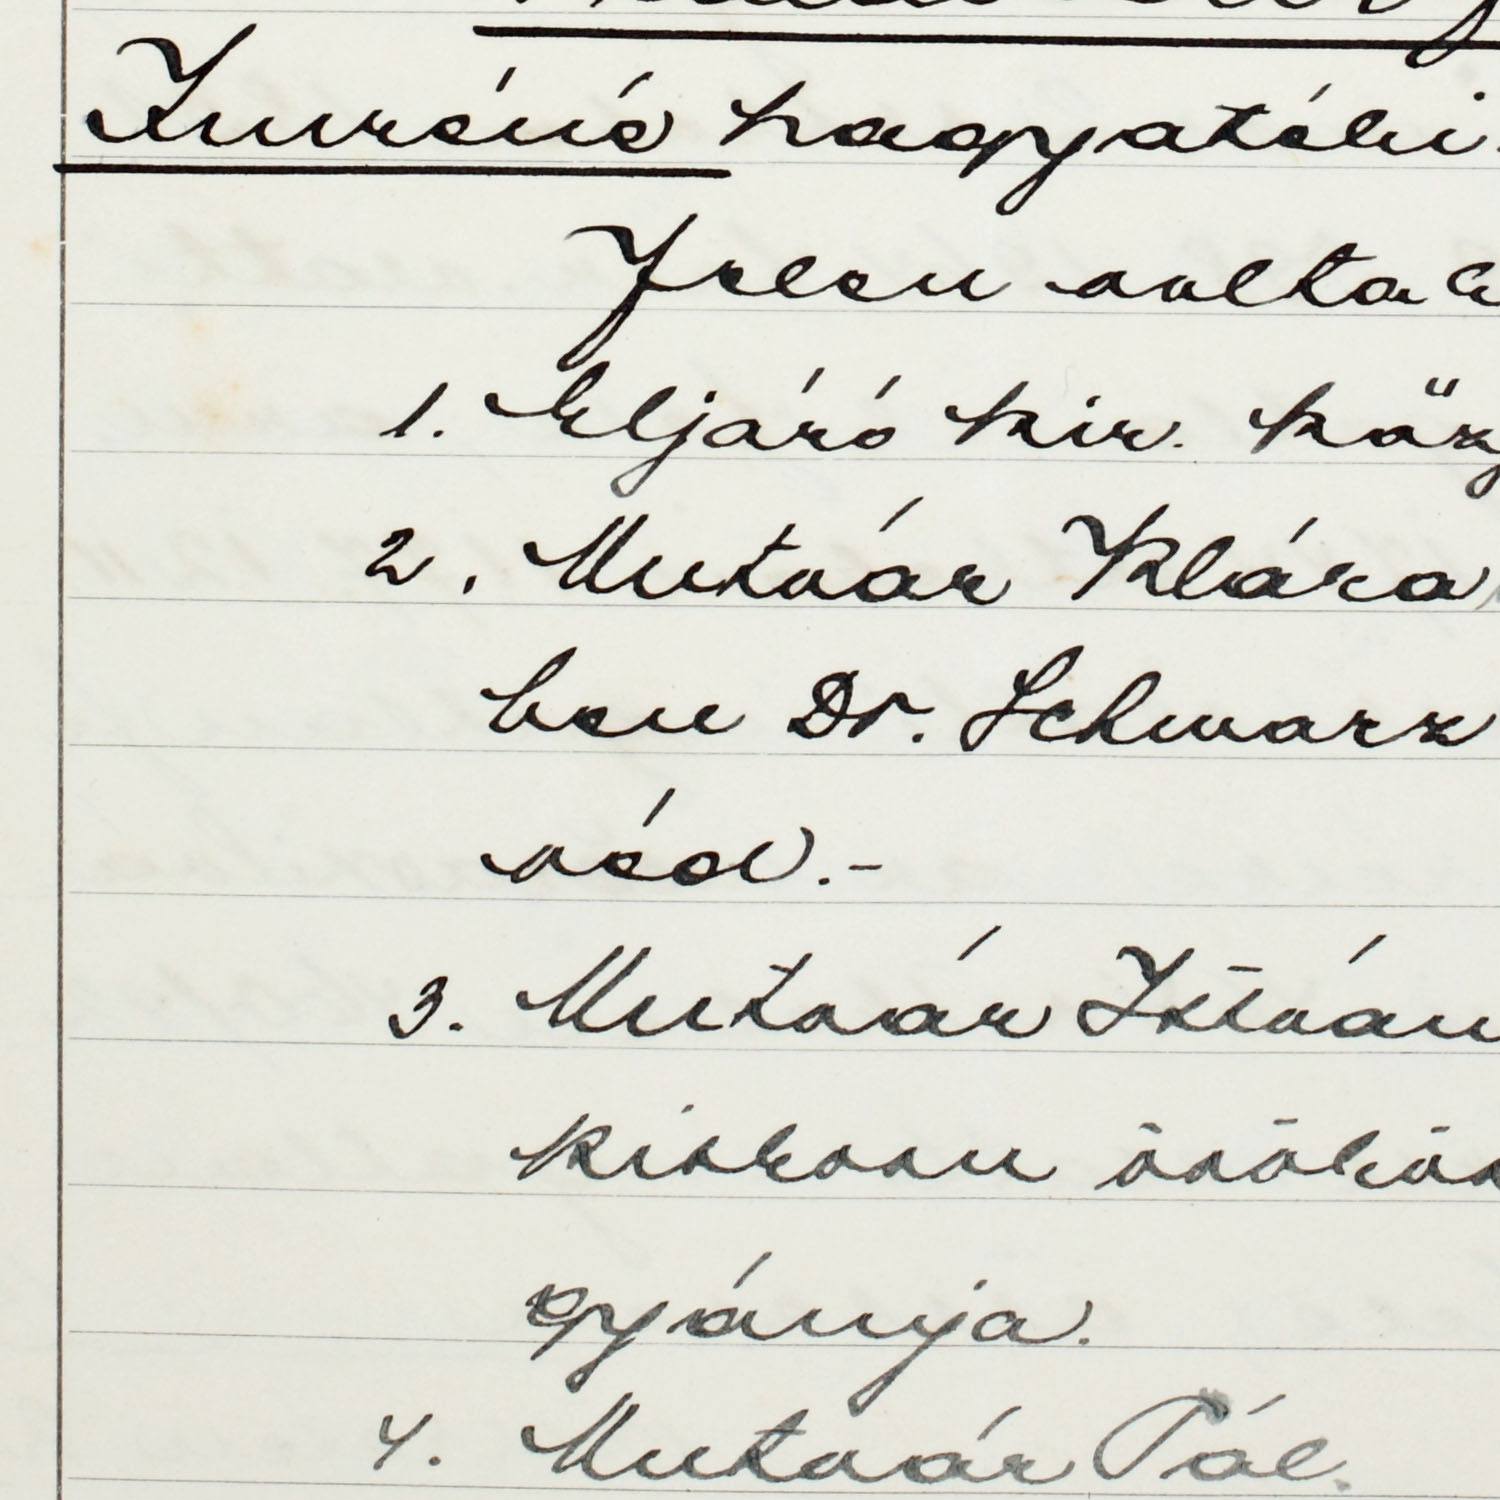 Imréné hagyatéki
Jelen voltak
1. Eljáró kir. köz
2. Mutvár Klára
ben Dr. Schwarz
véd.-
3. Mutvár István
kiskorú
gyámja.
4. Mutvár Pál.